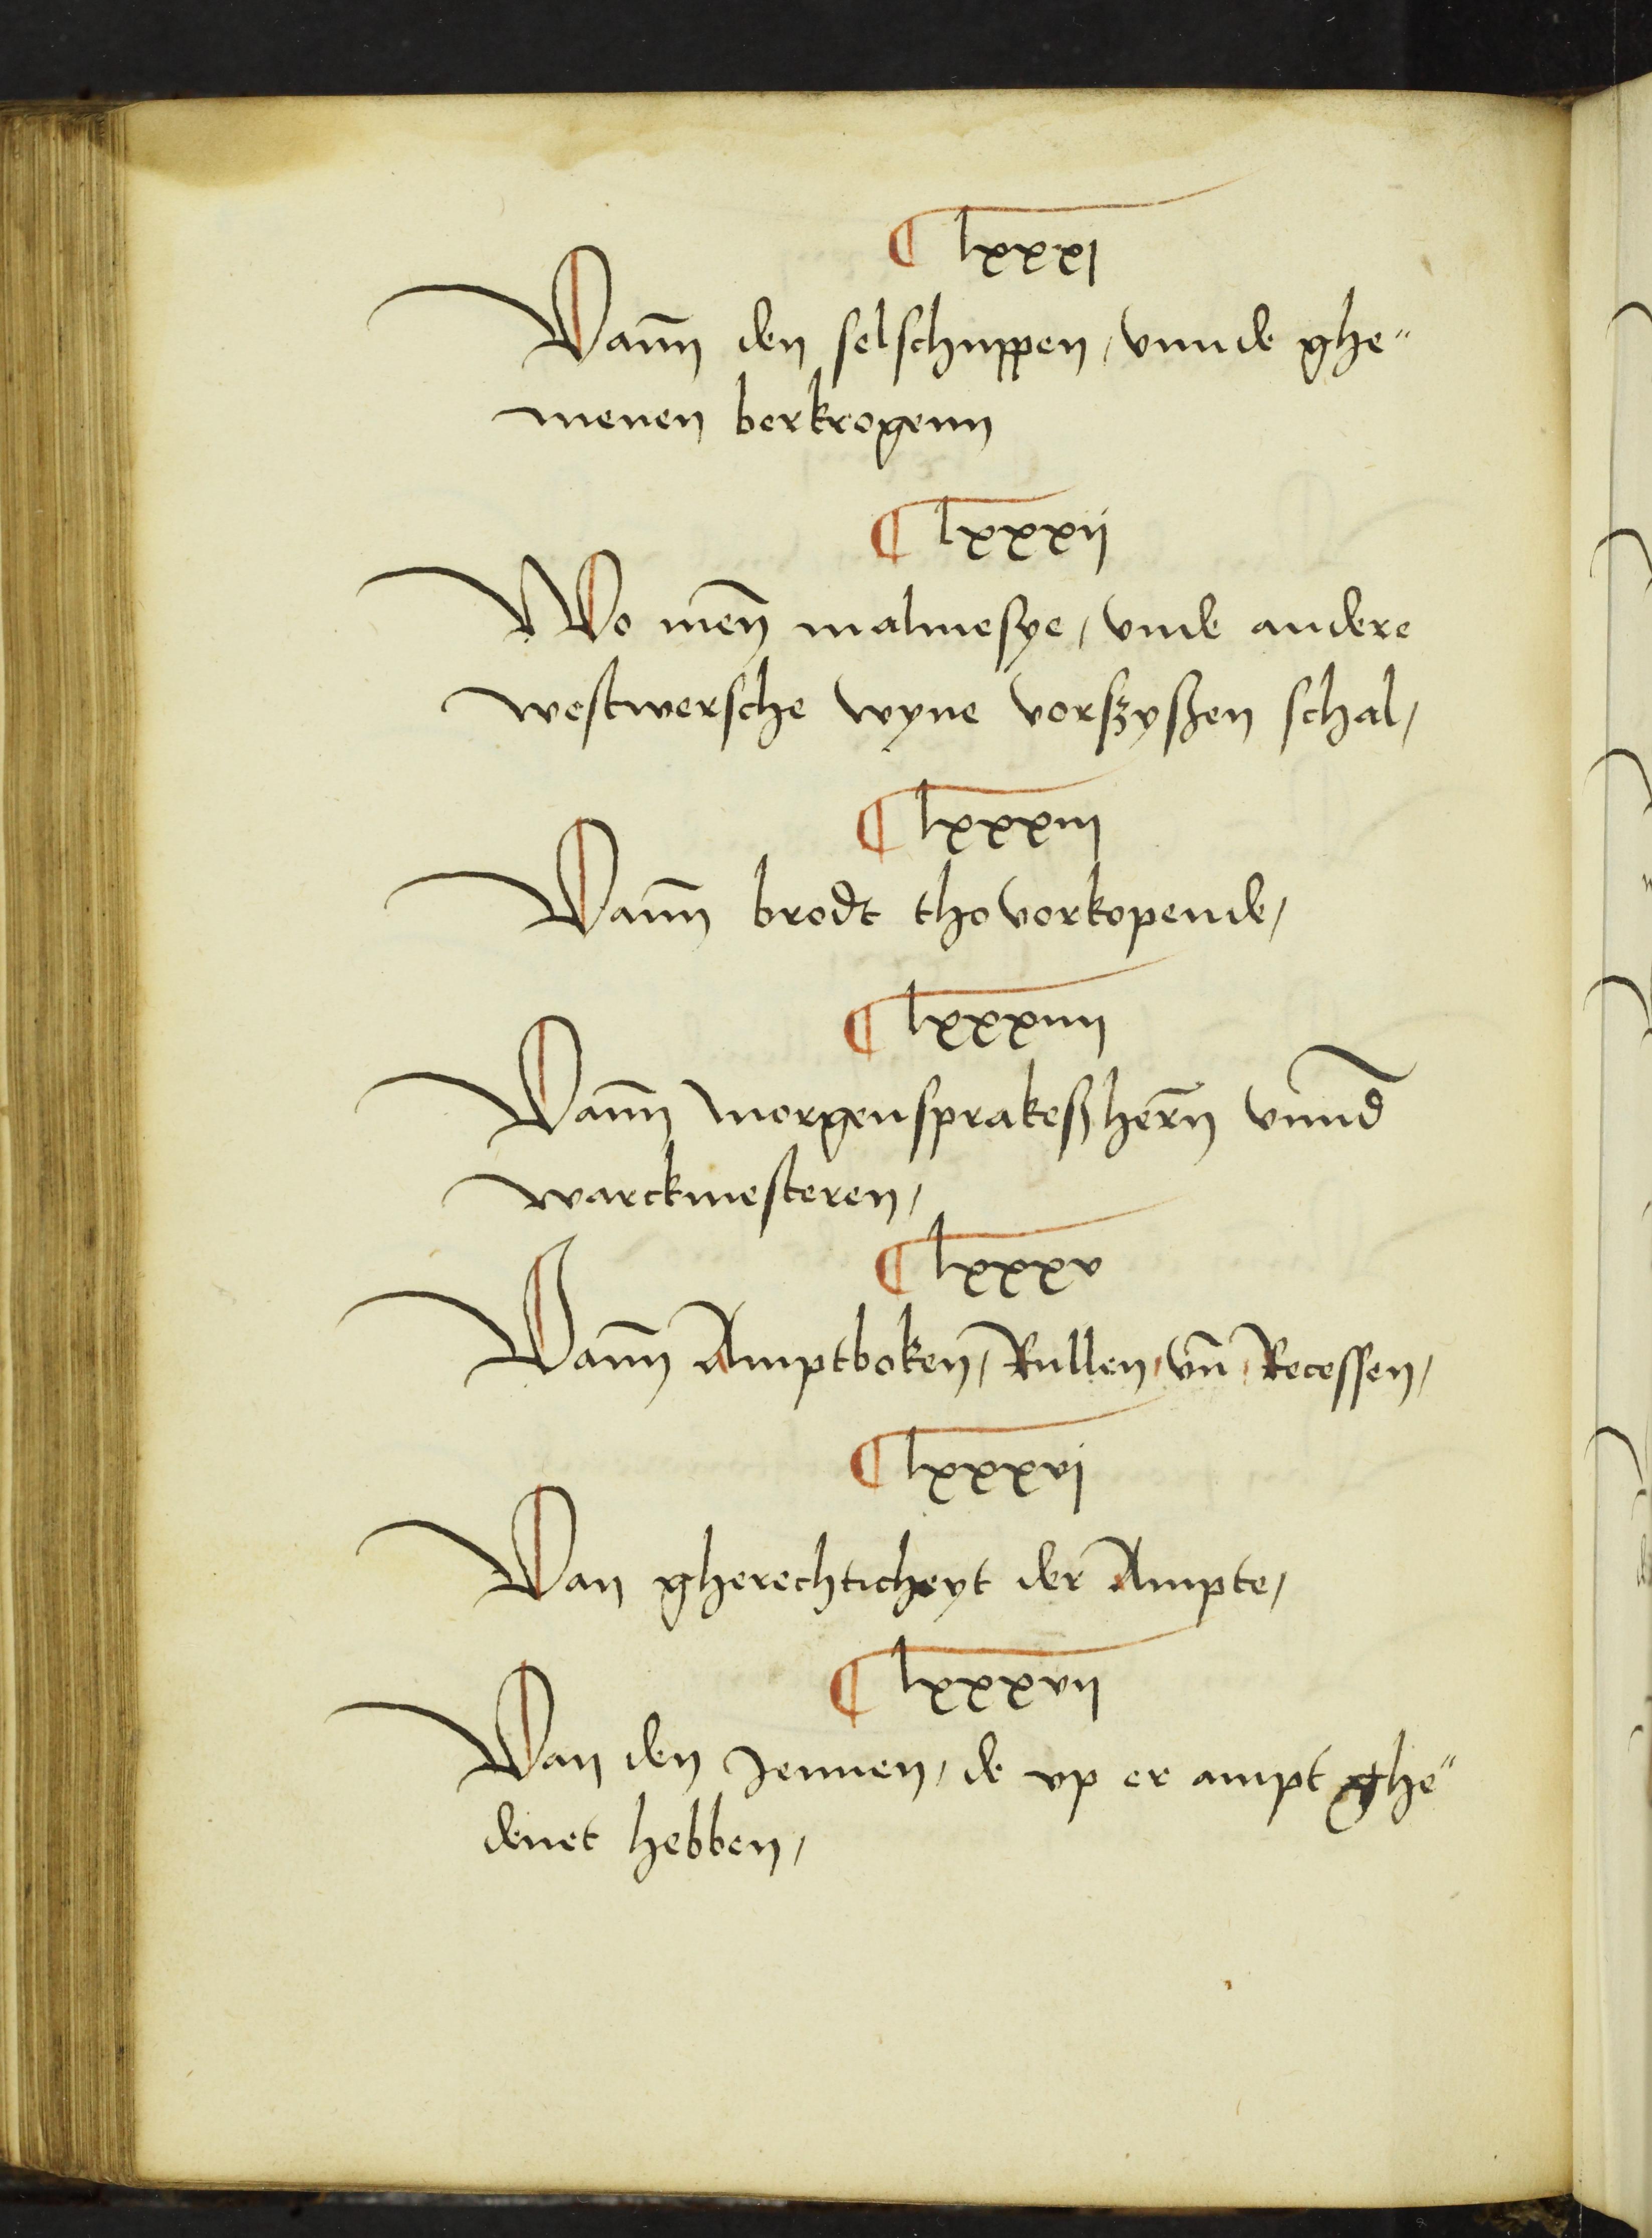 ¶ lxxxi
Vann̄ den selschuppen, vnnde ghe„
menen berkrogenn
¶ lxxxij
Wo men̄ malmesye, vnde andere
westwersche wyne vorszyszen schal,
¶ lxxxiii
Vann̄ brodt tho vorkopende,
¶ lxxxiiii
Vann̄ morgensprakeszherrn̄ vnnd̄
warckmesteren,
¶ lxxxv
Vann̄ Amptboken, Rullen, vn̄ Recessen,
¶ lxxxvj
Van gherechticheyt der Ampte,
¶ lxxxvii
Van den Jennen, de vp er ampt ghe„
denet hebben,